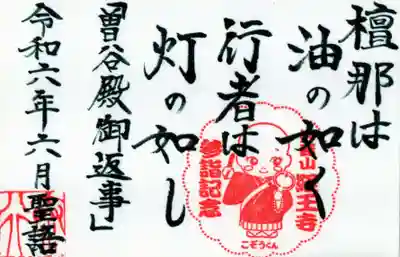 檀那は
油の如く
行者は
灯の如し
「曽谷殿御返事」
令和六年六月聖語
参詣記念
こぞうくん